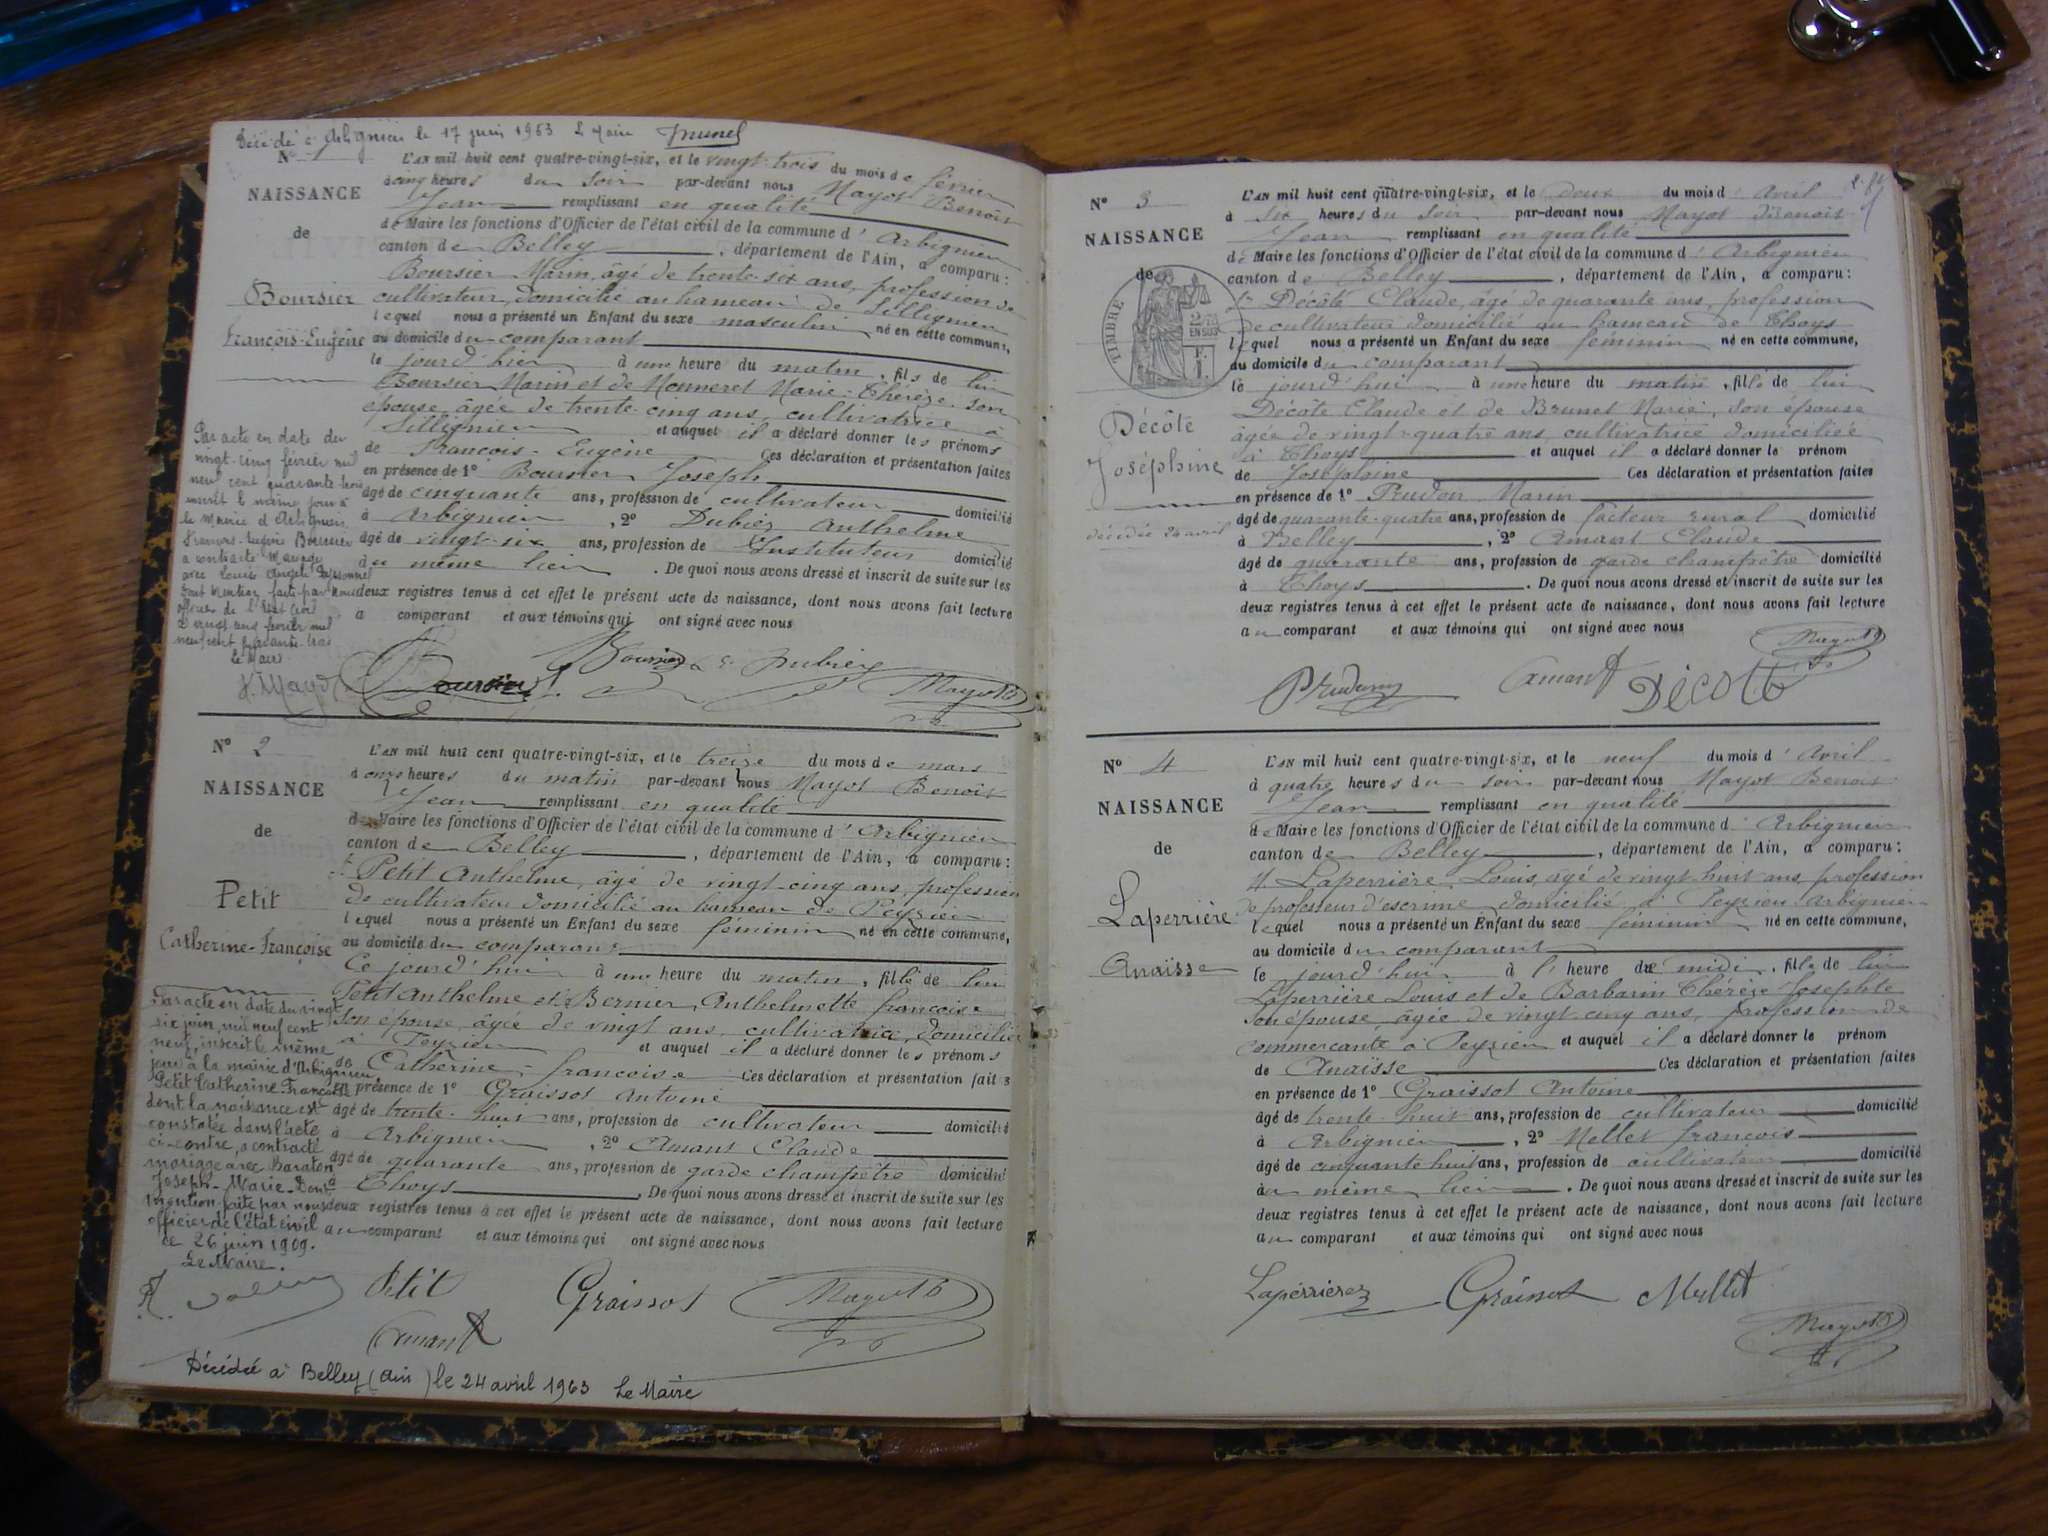 Décédé à Arbignieu le 17 juin 1953 Le Maire Prunel
N°
NAISSANCE
de
Boursier
François-Eugène
L'AN mil huit cent quatre-vingt-six, et le vingt-trois du mois de février
à cinq heures du soir par-devant nous Mayot Benoit
Jean remplissant en qualité
de Maire les fonctions d'Officier de l'état civil de la commune d' Arbignieu
canton de Belley, département de l'Ain, a comparu :
Boursier Marin, âgé de trente-six ans, profession de
cultivateur, domicilié au hameau de Sillignieu
lequel nous a présenté un Enfant du sexe masculin né en cette commune,
au domicile du comparant
le jourd'hier à une heure du matin, fils de lui
Boursier Marin et de Monneret Marie-Thérèse son
épouse âgée de trente-cinq ans, cultivatrice à
Sillignieu et auquel il a déclaré donner les prénoms
de François-Eugène Ces déclaration et présentation faites
en présence de 1° Boursier Joseph
âgé de cinquante ans, profession de cultivateur domicilié
à Arbignieu, 2° Dubiez Anthelme
âgé de vingt-six ans, profession de Instituteur domicilié
au même lieu. De quoi nous avons dressé et inscrit de suite sur les
deux registres tenus à cet effet le présent acte de naissance, dont nous avons fait lecture
a comparant et aux témoins qui ont signé avec nous
Par acte en date du
vingt-cinq février mil
neuf cent quarante-trois
inscrit le même jour à
la Mairie d'Arbignieu
François Eugène Boursier
a contracté Mariage
avec Louise Angèle
Dont Mention faite par Nous
officier de l'Etat Civil
Le vingt cinq février mil
neuf cent quarante trois
Le Maire
Boursier Boursier Dubiez Mayot B
N° 2
NAISSANCE
de
Petit
Catherine-Françoise
L'AN mil huit cent quatre-vingt-six, et le treize du mois de mars
à onze heures du matin par-devant nous Mayot Benoit
Jean remplissant en qualité
de Maire les fonctions d'Officier de l'état civil de la commune d' Arbignieu
canton de Belley, département de l'Ain, a comparu :
Sr Petit Anthelme, âgé de vingt-cinq ans, profession
de cultivateur domicilié au hameau de Peyzieu
lequel nous a présenté un Enfant du sexe féminin né en cette commune,
au domicile du comparant
Ce jourd'hui à une heure du matin, fille de lui
Petit Anthelme et de Bernier Anthelmette françoise
Son épouse, âgée de vingt ans, cultivatrice, domiciliée
à Peyzieu et auquel il a déclaré donner les prénoms
de Catherine-françoise Ces déclaration et présentation faites
en présence de 1° Graissot Antoine
âgé de trente-huit ans, profession de cultivateur domicilié
à Arbignieu, 2° Amant Claude
âgé de quarante ans, profession de garde champêtre domicilié
à Thoys. De quoi nous avons dressé et inscrit de suite sur les
deux registres tenus à cet effet le présent acte de naissance, dont nous avons fait lecture
au comparant et aux témoins qui ont signé avec nous
Par acte en date du vingt
six juin, mil neuf cent
neuf, inscrit le même
jour à la mairie d'Arbignieu
Petit Catherine Françoise
dont la naissance est
constatée dans l'acte
ci-contre, a contracté
mariage avec Baraton
Joseph-Marie-Dont
mention faite par nous
officier de l'état civil
ce 26 juin 1909.
Le Maire.
Petit Graissot Mayot B
Amant
Décédée à Belley (Ain) le 24 avril 1963 Le Maire
N° 3
NAISSANCE
de
TIMBRE
2/10
EN SUS
Décôte
Joséphine
décédée 24 avril
L'AN mil huit cent quatre-vingt-six, et le deux du mois d' Avril
à six heures du soir par-devant nous Mayot Benoit
Jean remplissant en qualité
de Maire les fonctions d'Officier de l'état civil de la commune d' Arbignieu
canton de Belley, département de l'Ain, a comparu :
Sr Décôte Claude, âgé de quarante ans, profession
de cultivateur domicilié au hameau de Thoys
lequel nous a présenté un Enfant du sexe féminin né en cette commune,
au domicile du comparant
le jourd'hui à une heure du matin, fille de lui
Décôte Claude et de Brunet Marie, son épouse
âgée de vingt-quatre ans, cultivatrice domiciliée
à Thoys et auquel il a déclaré donner le prénom
de Joséphine Ces déclaration et présentation faites
en présence de 1° Prudon Marin
âgé de quarante-quatre ans, profession de facteur rural domicilié
à Belley, 2° Amant Claude
âgé de quarante ans, profession de garde champêtre domicilié
à Thoys. De quoi nous avons dressé et inscrit de suite sur les
deux registres tenus à cet effet le présent acte de naissance, dont nous avons fait lecture
au comparant et aux témoins qui ont signé avec nous
Prudon Amant Décote Mayot B
N° 4
NAISSANCE
de
Laperrière
Anaïsse
L'AN mil huit cent quatre-vingt-six, et le neuf du mois d' Avril
à quatre heures du soir par-devant nous Mayot Benoit
Jean remplissant en qualité
de Maire les fonctions d'Officier de l'état civil de la commune d' Arbignieu
canton de Belley, département de l'Ain, a comparu :
Laperrière Louis, âgé de vingt huit ans, profession
de professeur d'escrime domicilié à Peyzieu Arbignieu
lequel nous a présenté un Enfant du sexe féminin né en cette commune,
au domicile du comparant
le jourd'hui à l' heure de midi, fille de lui
Laperrière Louis et de Barbarin Thérèze Josephte
son épouse âgée de vingt-cinq ans, profession de
commerçante à Peyzieu et auquel il a déclaré donner le prénom
de Anaïsse Ces déclaration et présentation faites
en présence de 1° Graissot Antoine
âgé de trente-huit ans, profession de cultivateur domicilié
à Arbignieu, 2° Mollet françois
âgé de cinquante huit ans, profession de cultivateur domicilié
au même lieu. De quoi nous avons dressé et inscrit de suite sur les
deux registres tenus à cet effet le présent acte de naissance, dont nous avons fait lecture
au comparant et aux témoins qui ont signé avec nous
Laperrière Graissot Mollet
Mayot B